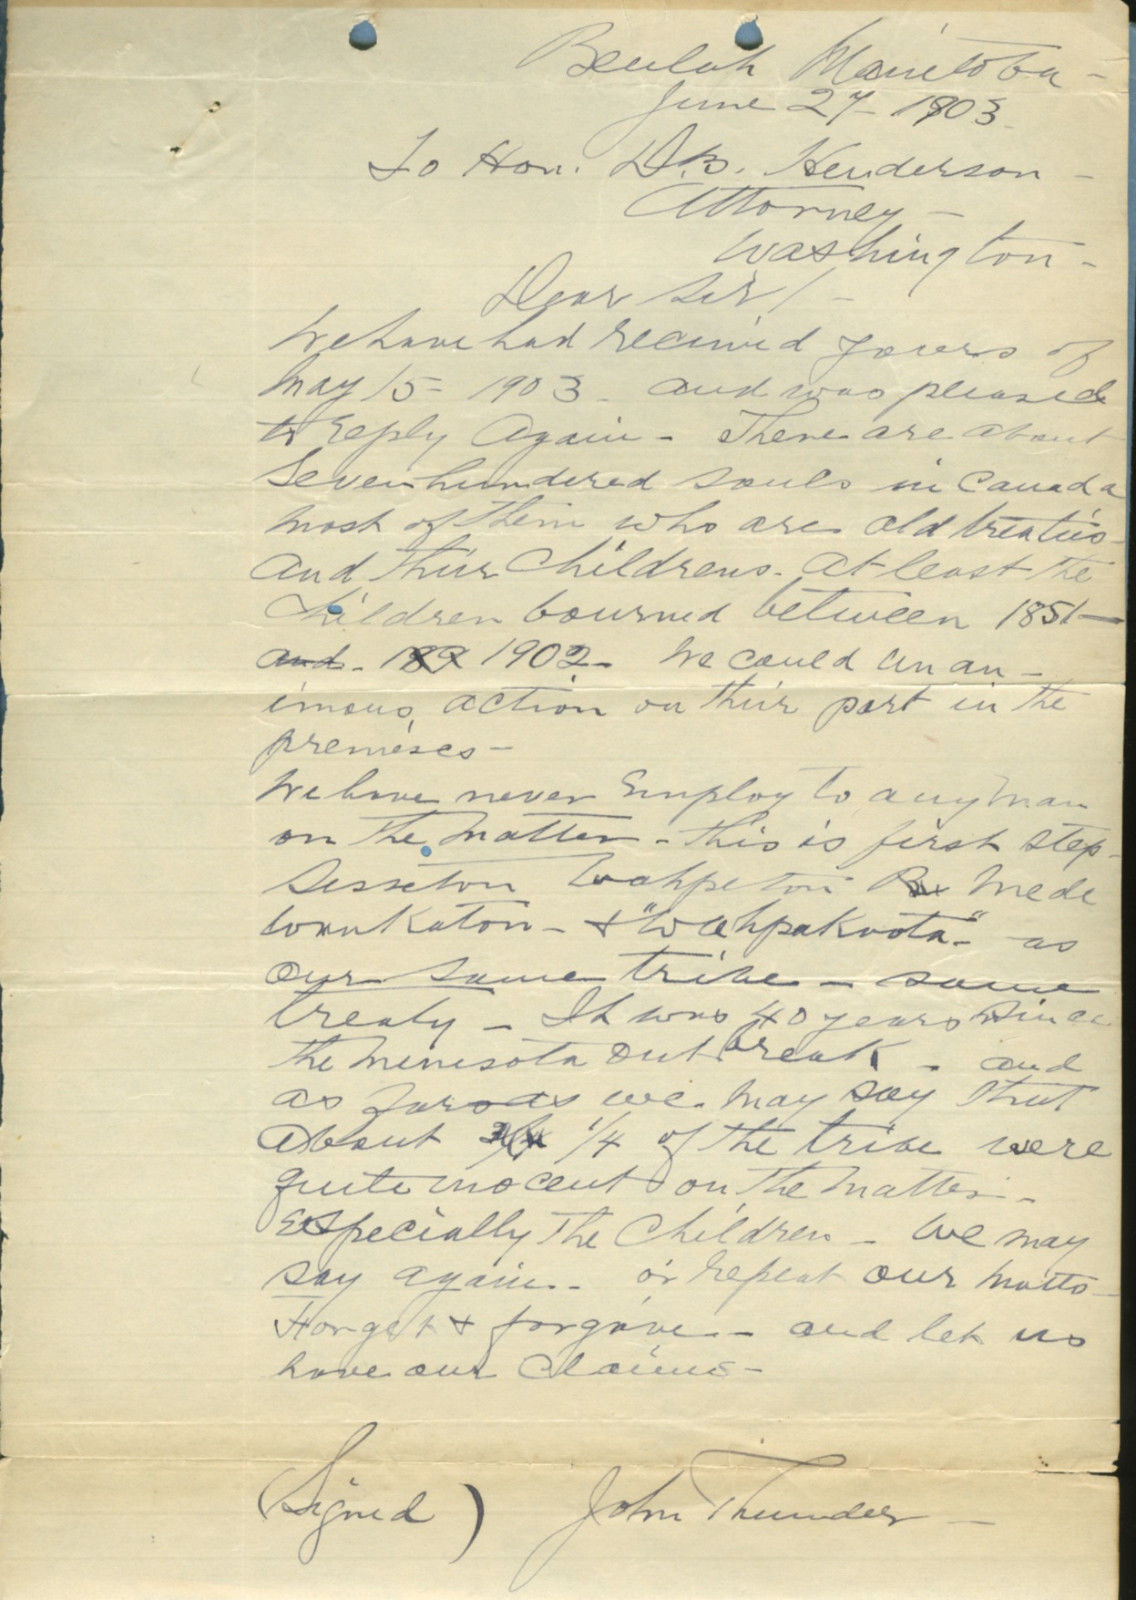 Beulah Manitoba -
June 27 - 1903
To Hon. D.B. Henderson -
Attorney -
Washington -
Dear Sir / -
We have had received yours of
May 15 - 1903 - and was pleased
to reply again - There are about
Seven hundred souls in Canada
most of them who are old treaties -
and thier Childrens. at least the
Children bourned between 1851 -
and - 1902 - We could un an -
imous, action on thier part in the
premises -
We have never Employ to any man
on the matter - this is first step -
Sisseton Wahpeton Mede
wankaton - & "Wahpakoota" - as
our same tribe - same
treaty - It was 40 years since
the Minesota Out break - and
as far as we may say that
about 1/4 of the tribe were
quite inocent on the matter -
Especially the Children - We may
say again - or repeat our motto -
Forget & forgive - and let us
have our Claims -
(Signed) John Thunder -